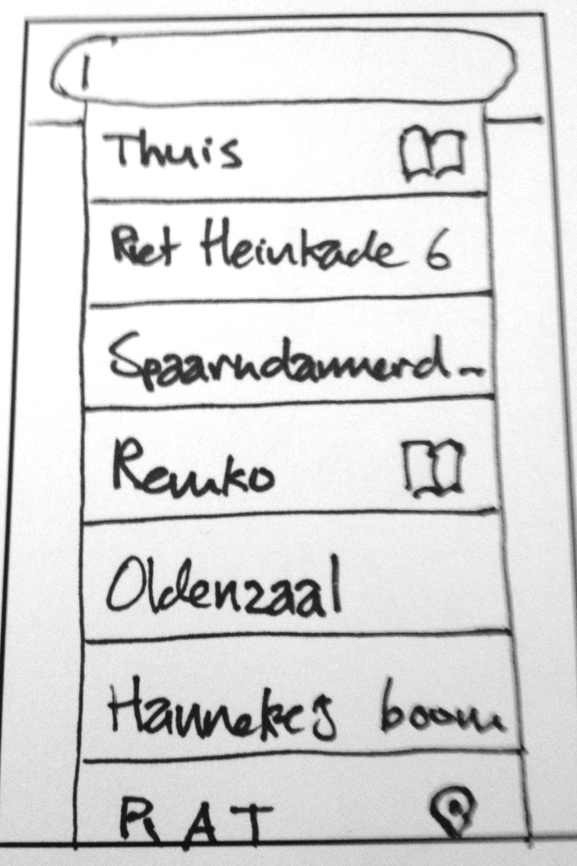 Thuis
Piet Heinkade 6
Spaarndammerd
Remko
Oldenzaal
Hannekes boom